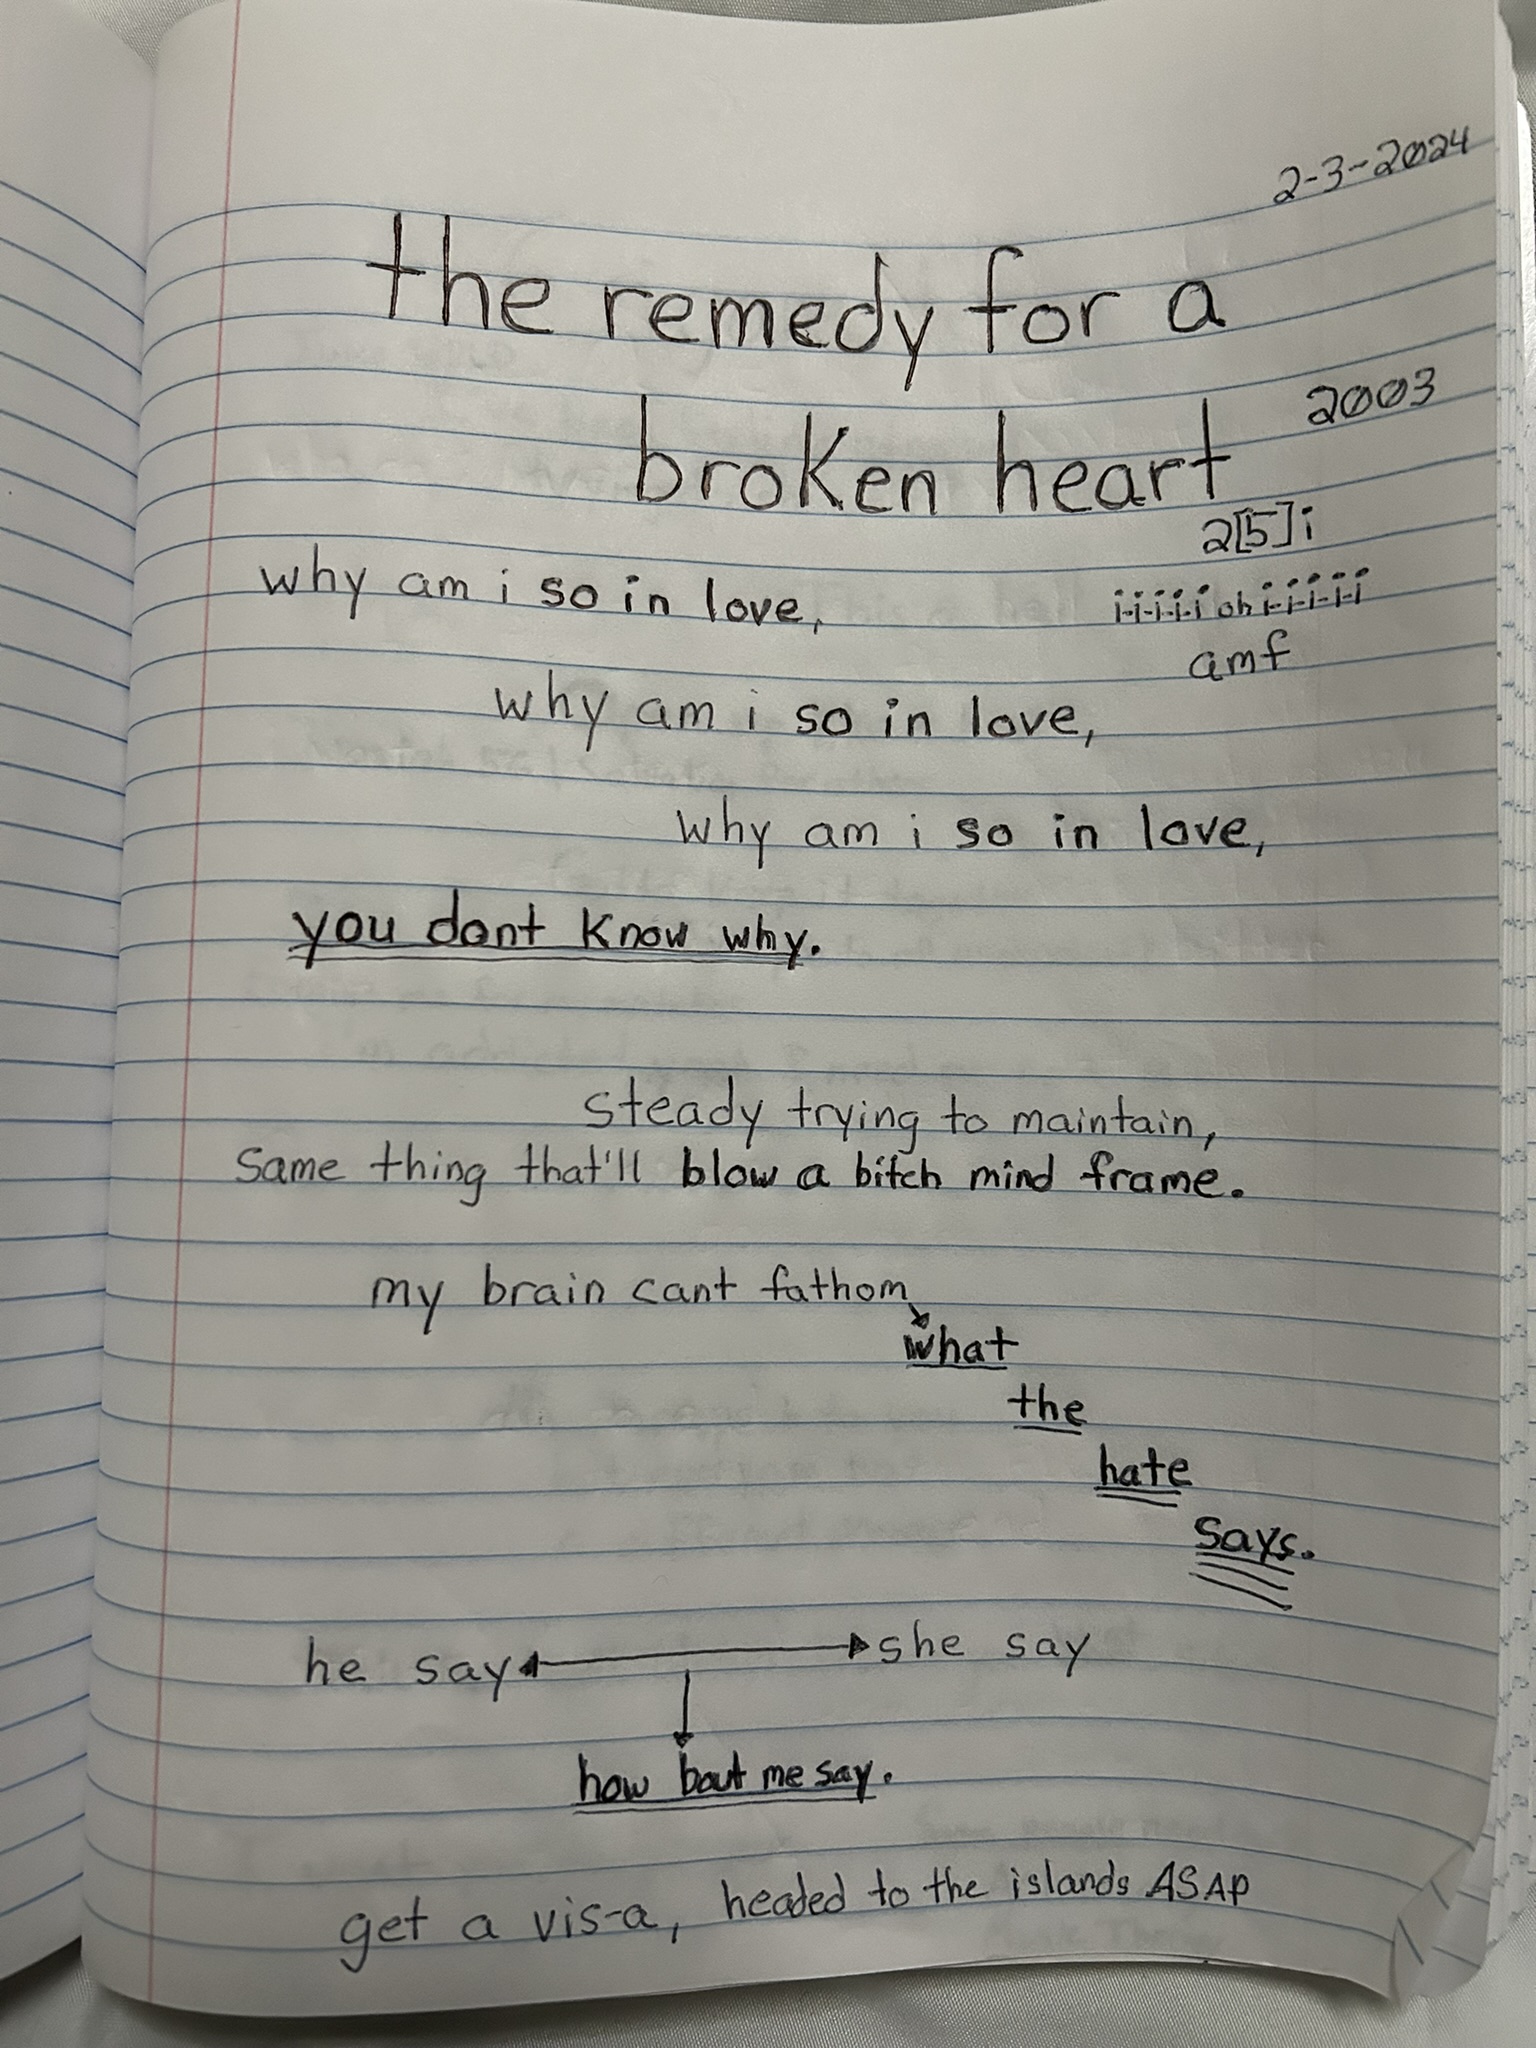 2-3-2024
the remedy for a
broken heart
2003
2[5]i
why am i so in love,
i-i-i-i-i oh i-i-i-i-i-i
amf
why am i so in love,
why am i so in love,
you dont know why.
steady trying to maintain,
Same thing that'll blow a bitch mind frame.
my brain cant fathom
what
the
hate
says.
he say she say
how bout me say.
get a vis-a, headed to the islands ASAP